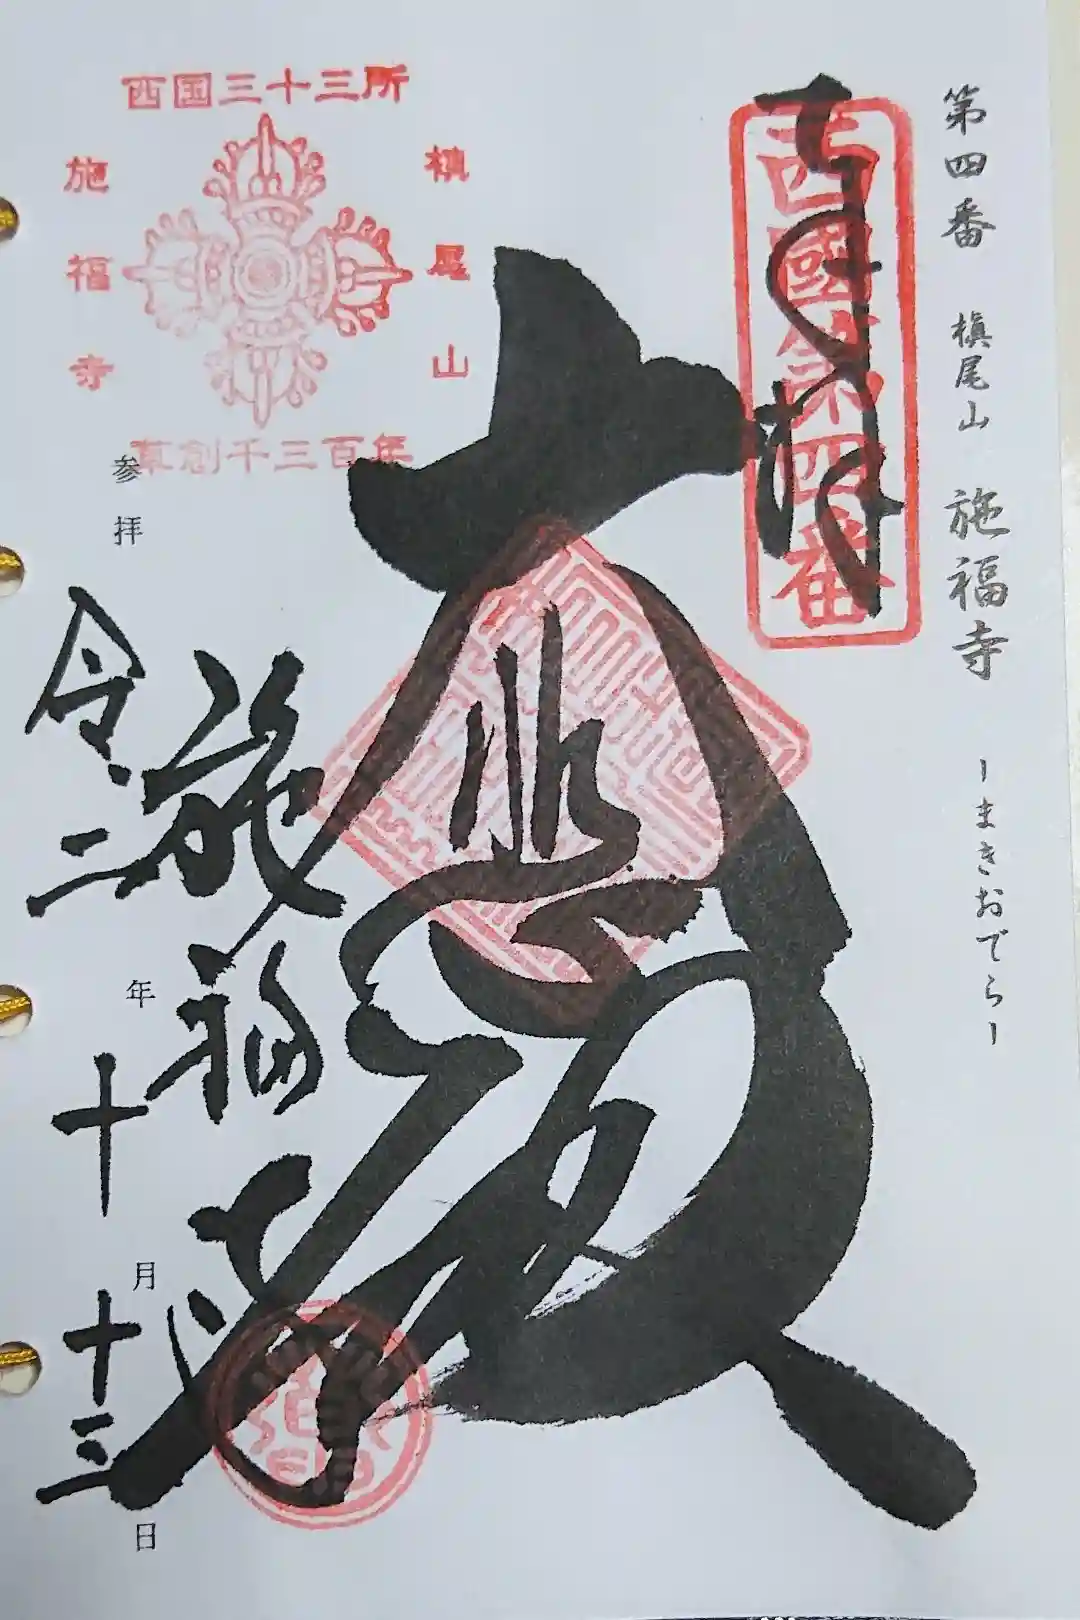 第四番 槇尾山 施福寺 ーまきおでらー
奉拝
西國第四番
大悲殿
西国三十三所
槙尾山
施福寺
草創千三百年
施福寺
参拝 令二年十月十三日